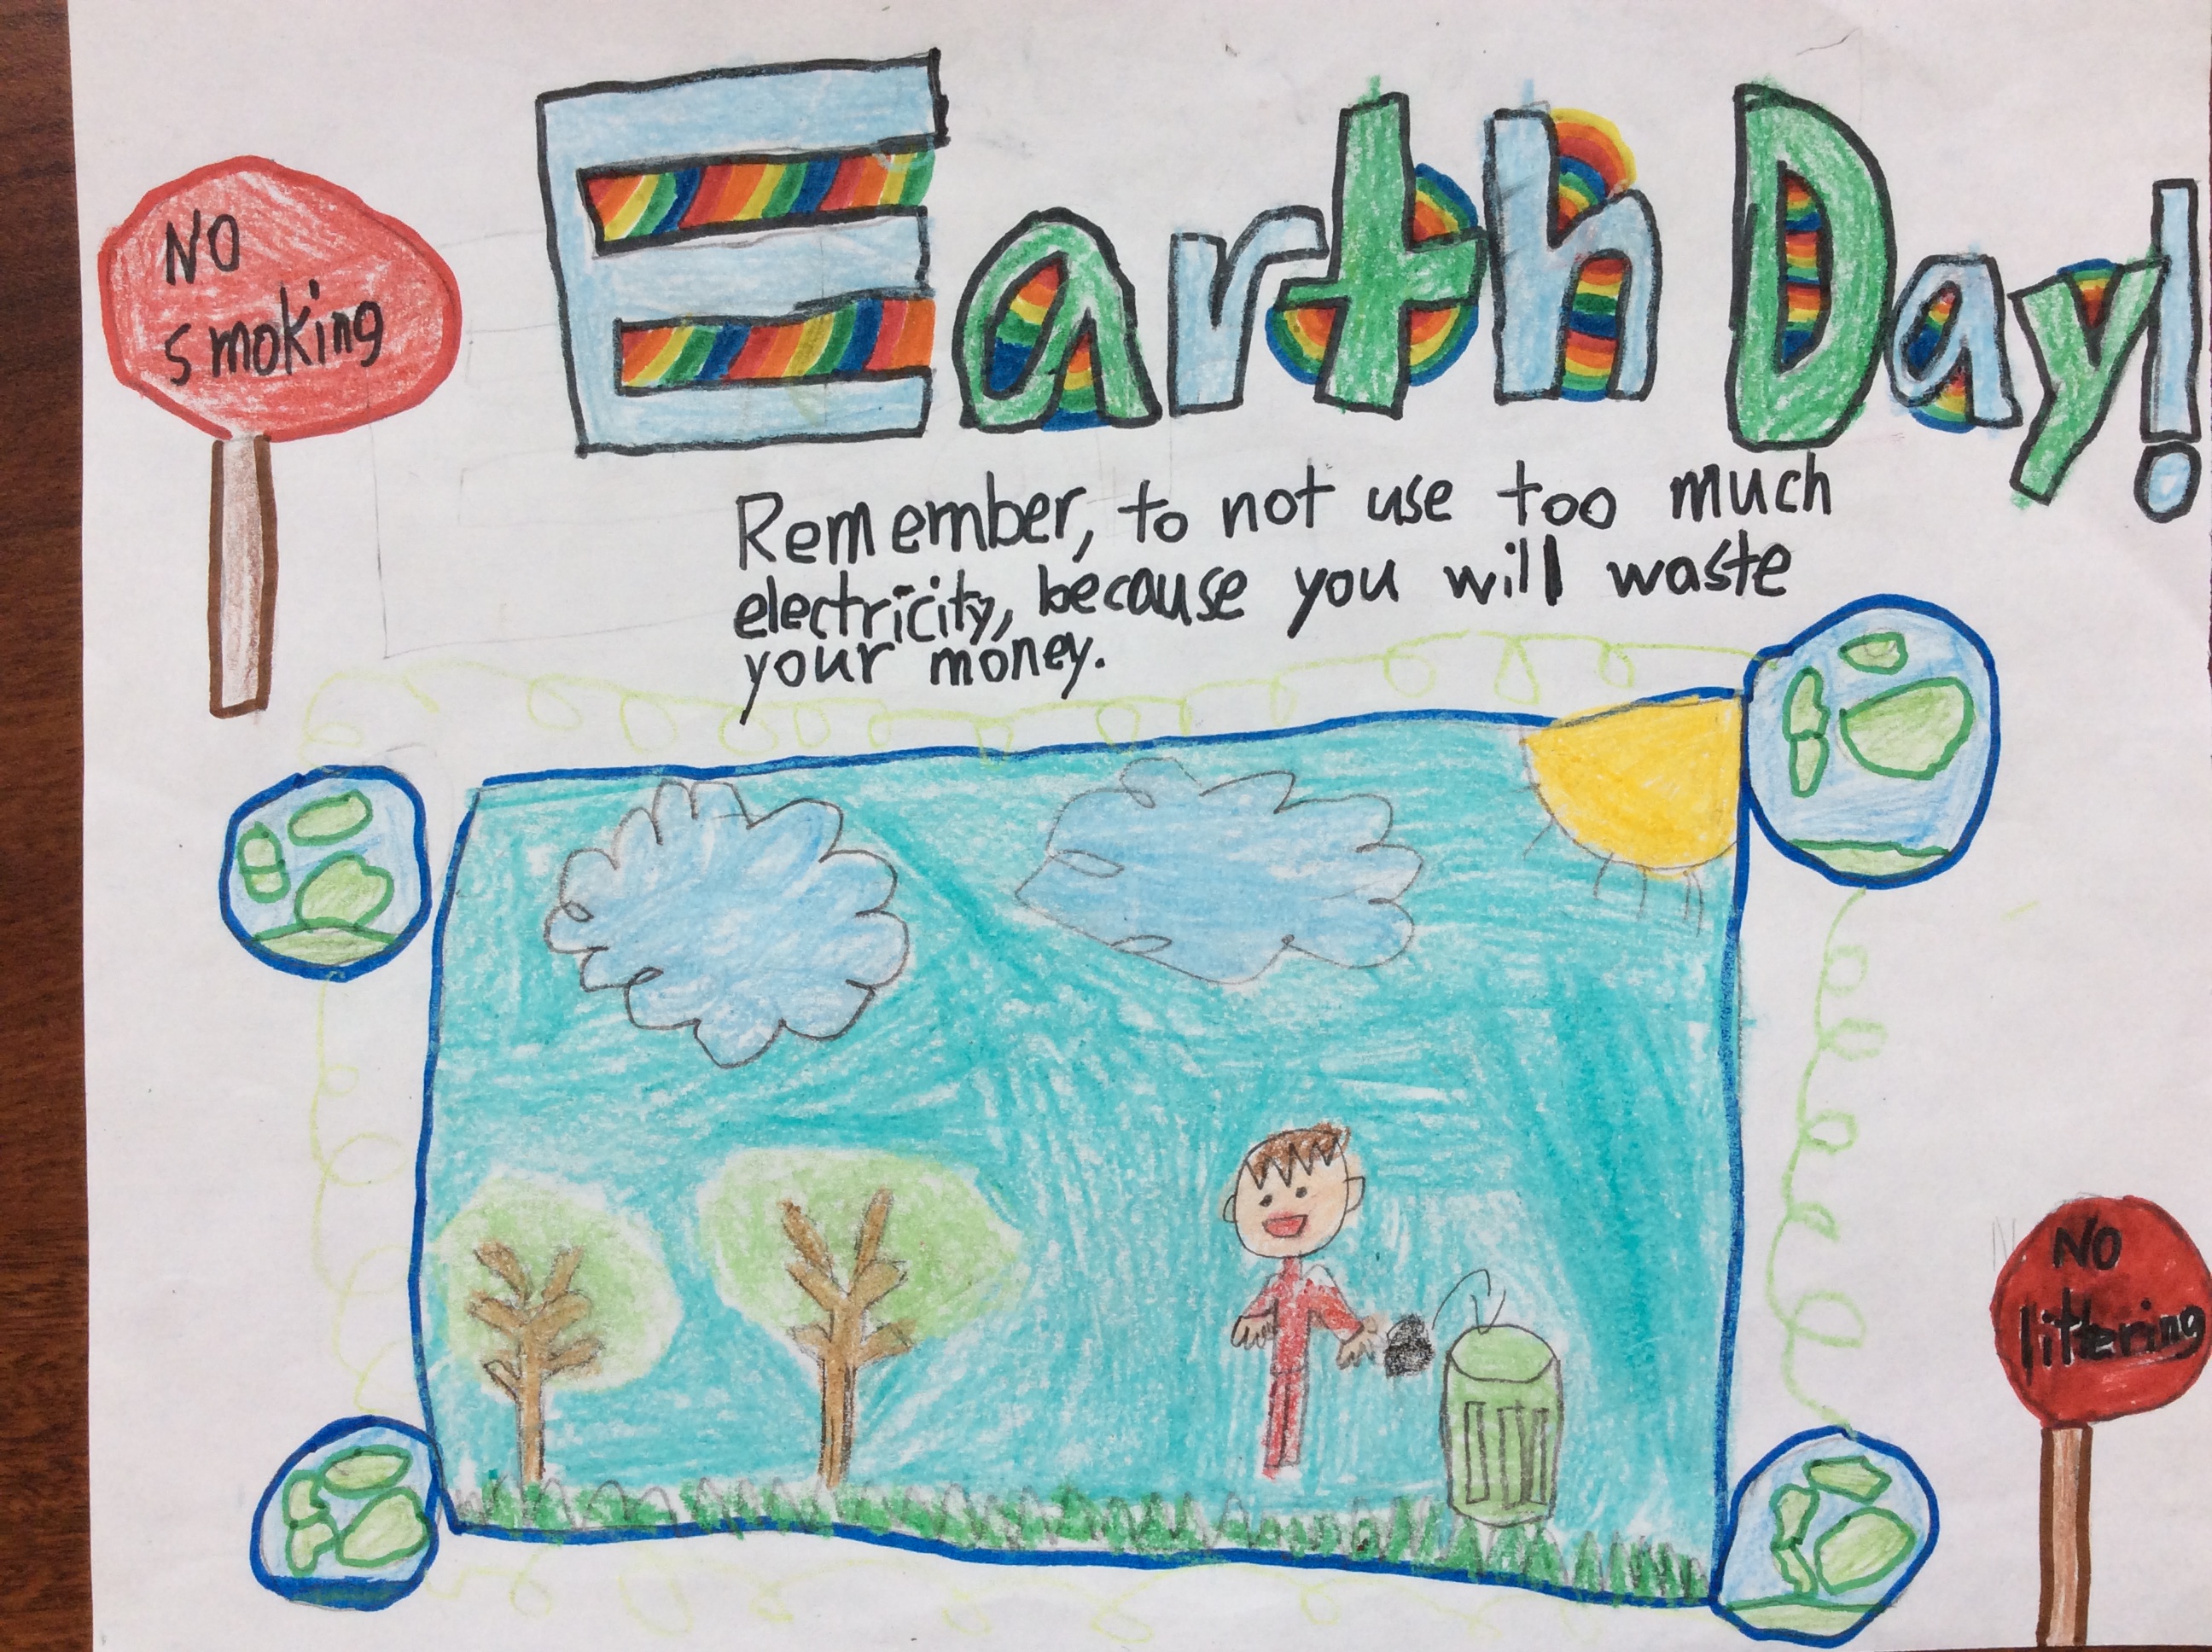 Earth Day!
No
smoking
Remember, to not use too much
electricity, because you will waste
your money.
No
littering